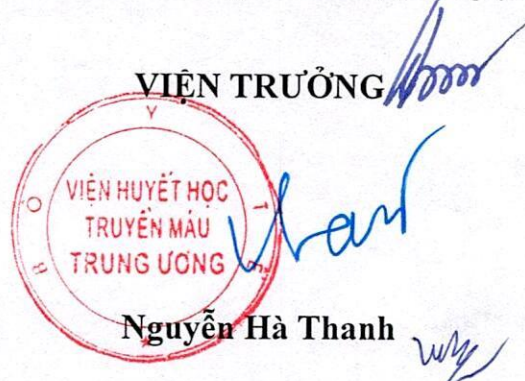 VIỆN TRƯỞNG
BỘ Y TẾ
VIỆN HUYẾT HỌC
TRUYỀN MÁU
TRUNG ƯƠNG
Nguyễn Hà Thanh